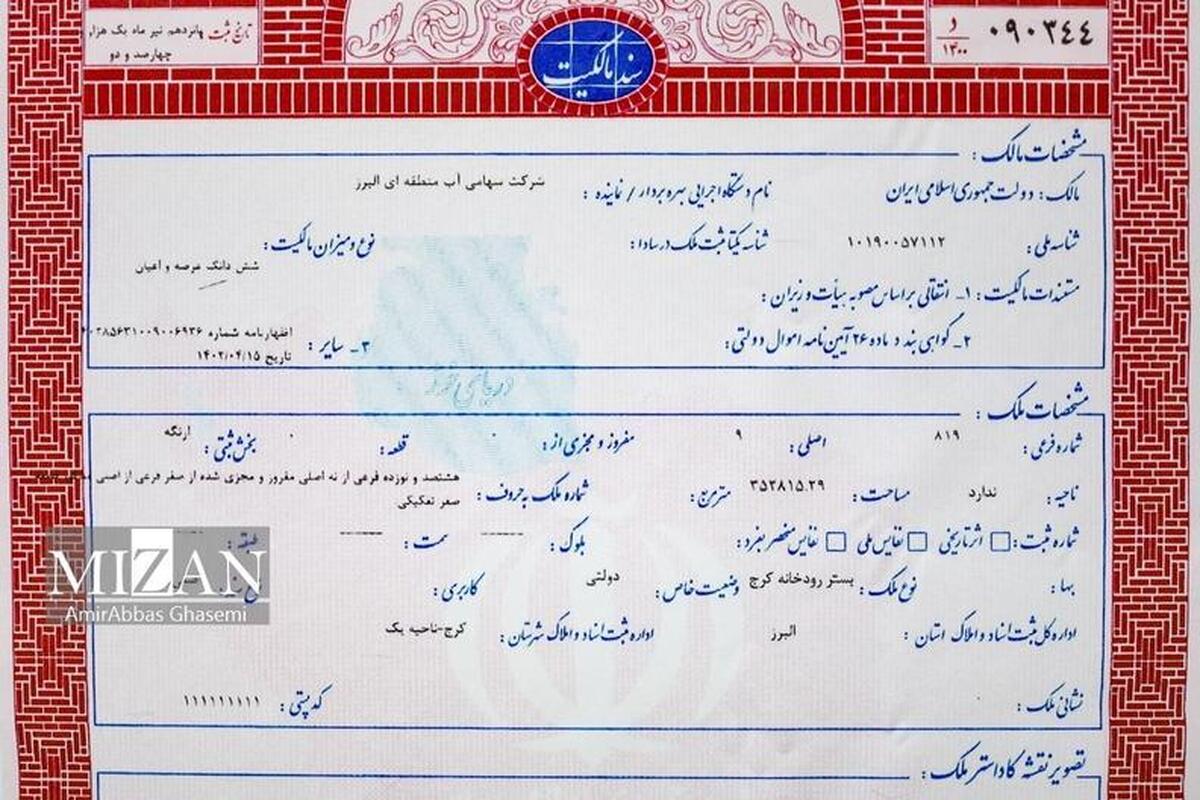 تاریخ ثبت پانزدهم تیر ماه یک هزار
چهارصد و دو
سند مالکیت
د
۱۴۰۰
۰۹۰۳۴۴
مشخصات مالک :
مالک : دولت جمهوری اسلامی ایران نام دستگاه اجرایی بهره بردار / نماینده : شرکت سهامی آب منطقه ای البرز
شناسه ملی : ۱۰۱۹۰۰۵۷۱۱۲ شناسه یکتا ثبت ملک در سادا : نوع و میزان مالکیت :
شش دانگ عرصه و اعیان
مستندات مالکیت : ۱_ انتقالی بر اساس مصوبه هیأت وزیران :
۲_ گواهی بند د ماده ۲۶ آیین نامه اموال دولتی : ۳_ سایر : اظهارنامه شماره
تاریخ ۱۴۰۲/۰۴/۱۵
دریای نور
مشخصات ملک :
شماره فرعی : ۸۱۹ اصلی : ۹ مفروز و مجزی از : ۰ قطعه : ۰ بخش ثبتی : ارنگه
ناحیه : ندارد مساحت : ۳۵۲۸۱۵.۲۹ مترمربع : شماره ملک به حروف : هشتصد و نوزده فرعی از نه اصلی مفروز و مجزی شده از صفر فرعی از اصلی
صفر تفکیکی
شماره ثبت : اثر تاریخی نفایس ملی نفایس منحصر بفرد : بلوک : ------ سمت : ------ طبقه :
بها : نوع ملک : بستر رودخانه کرج وضعیت خاص : دولتی کاربری :
اداره کل ثبت اسناد و املاک استان : البرز اداره ثبت اسناد و املاک شهرستان : کرج-ناحیه یک
نشانی ملک : کد پستی : ۱۱۱۱۱۱۱۱۱۱
تصویر نقشه کاداستر ملک :
MIZAN
AmirAbbas Ghasemi